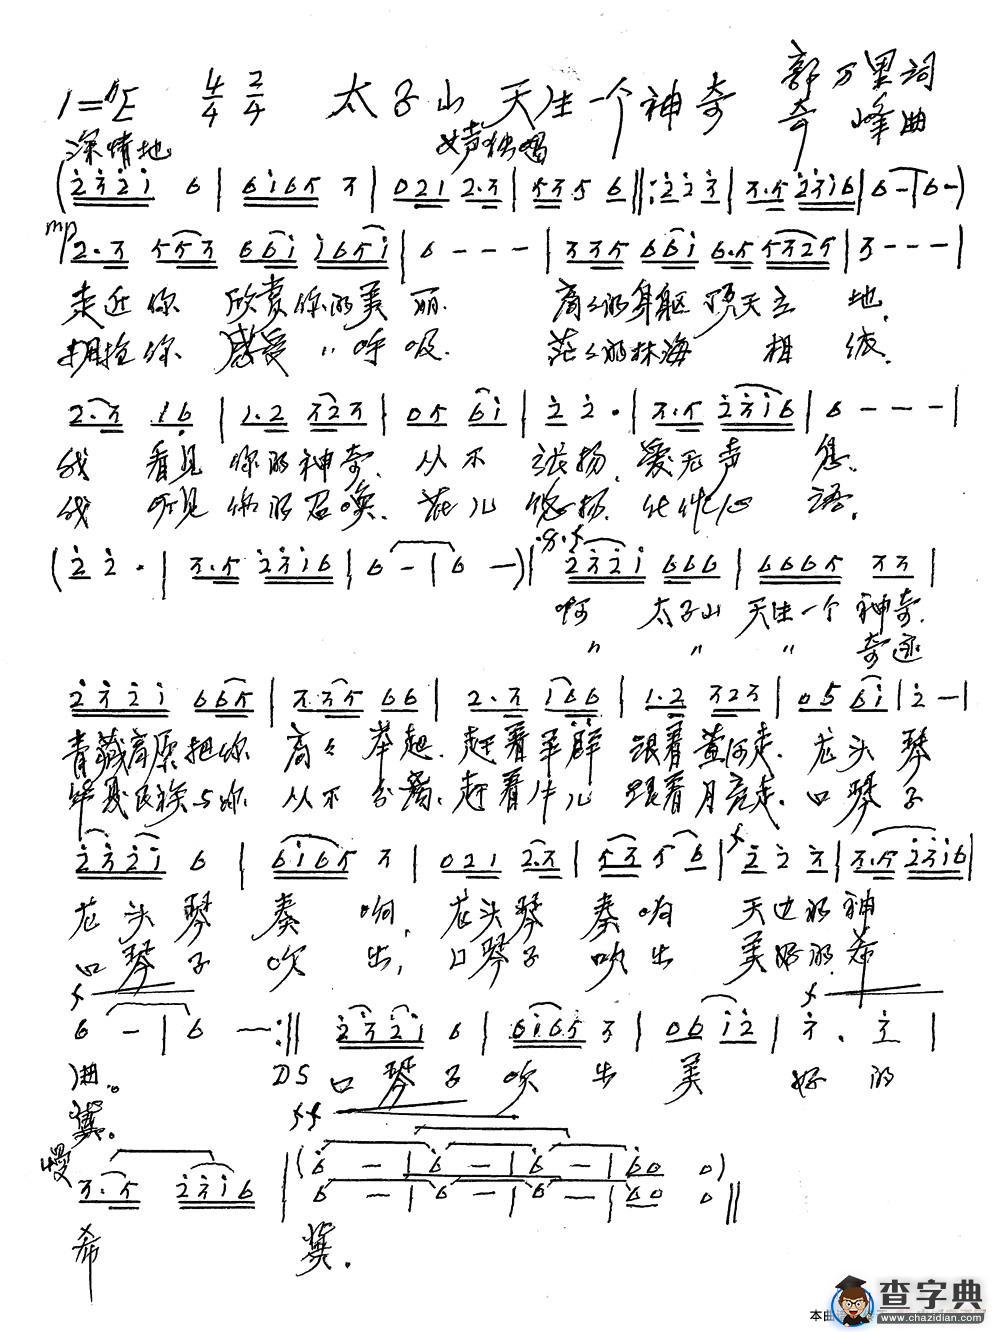 1=♭E 4/4 2/4 太子山天生一个神奇 郭万里词
深情地 女声独唱 奇峰曲
(2̇3̇2̇1̇ 6 | 61̇65 3 | 021 2.3 | 535 6 ‖: 2̇2̇ 3̇ | 3.5 2̇3̇1̇6 | 6 - | 6 -)
mp 2.3 553 661̇ 1̇651̇ | 6 - - - | 335 661̇ 6.5 5325 | 3 - - - |
走近你 欣赏你的美丽. 高高的身躯顶天立地.
拥抱你 感受〃呼吸. 茫茫的林海 相依.
2.3 16 | 1.2 323 | 05 61̇ | 2̇ 2̇. | 3.5 2̇3̇1̇6 | 6 - - - |
我 看见 你的神奇. 从不 张扬. 爱无声 息.
我 听见 你的召唤. 花儿 悠扬. 语.
(2̇ 2̇. | 3.5 2̇3̇1̇6 | 6 - | 6 -) | f 2̇3̇2̇1̇ 666 | 6665 33 |
啊 太子山 天生一个 神奇.
〃 〃 〃 奇迹
2̇3̇2̇1̇ 665 | 3.35 66 | 2.3 1̇66 | 1.2 323 | 05 61̇ | 2̇ - |
青藏高原把你 高高 举起. 赶着羊群 跟着黄河走. 龙头 琴
华夏民族与你 从不 分离. 赶着牛儿 跟着月亮走. 口琴 子
2̇3̇2̇1̇ 6 | 61̇65 3 | 021 2.3 | 535 6 | f 2̇ 2̇ 3̇ | 3.5 2̇3̇1̇6 |
龙头琴 奏响, 龙头琴 奏响 天边的神
口琴子 吹出, 口琴子 吹出 美好的希
f 6 - | 6 - :‖ 2̇3̇2̇1̇ 6 | 61̇65 3 | 06 1̇2̇ | f 3̇. 3̇ |
曲。 DS 口琴子 吹出 美 好的
冀。 ff
慢 3.5 2̇3̇1̇6 | (6̇ - | 6̇ - | 6̇ - | 6̇0 0)
6 - | 6 - | 6 - | 60 0 ‖
希 冀.
查字典
www.chazidian.com
本曲